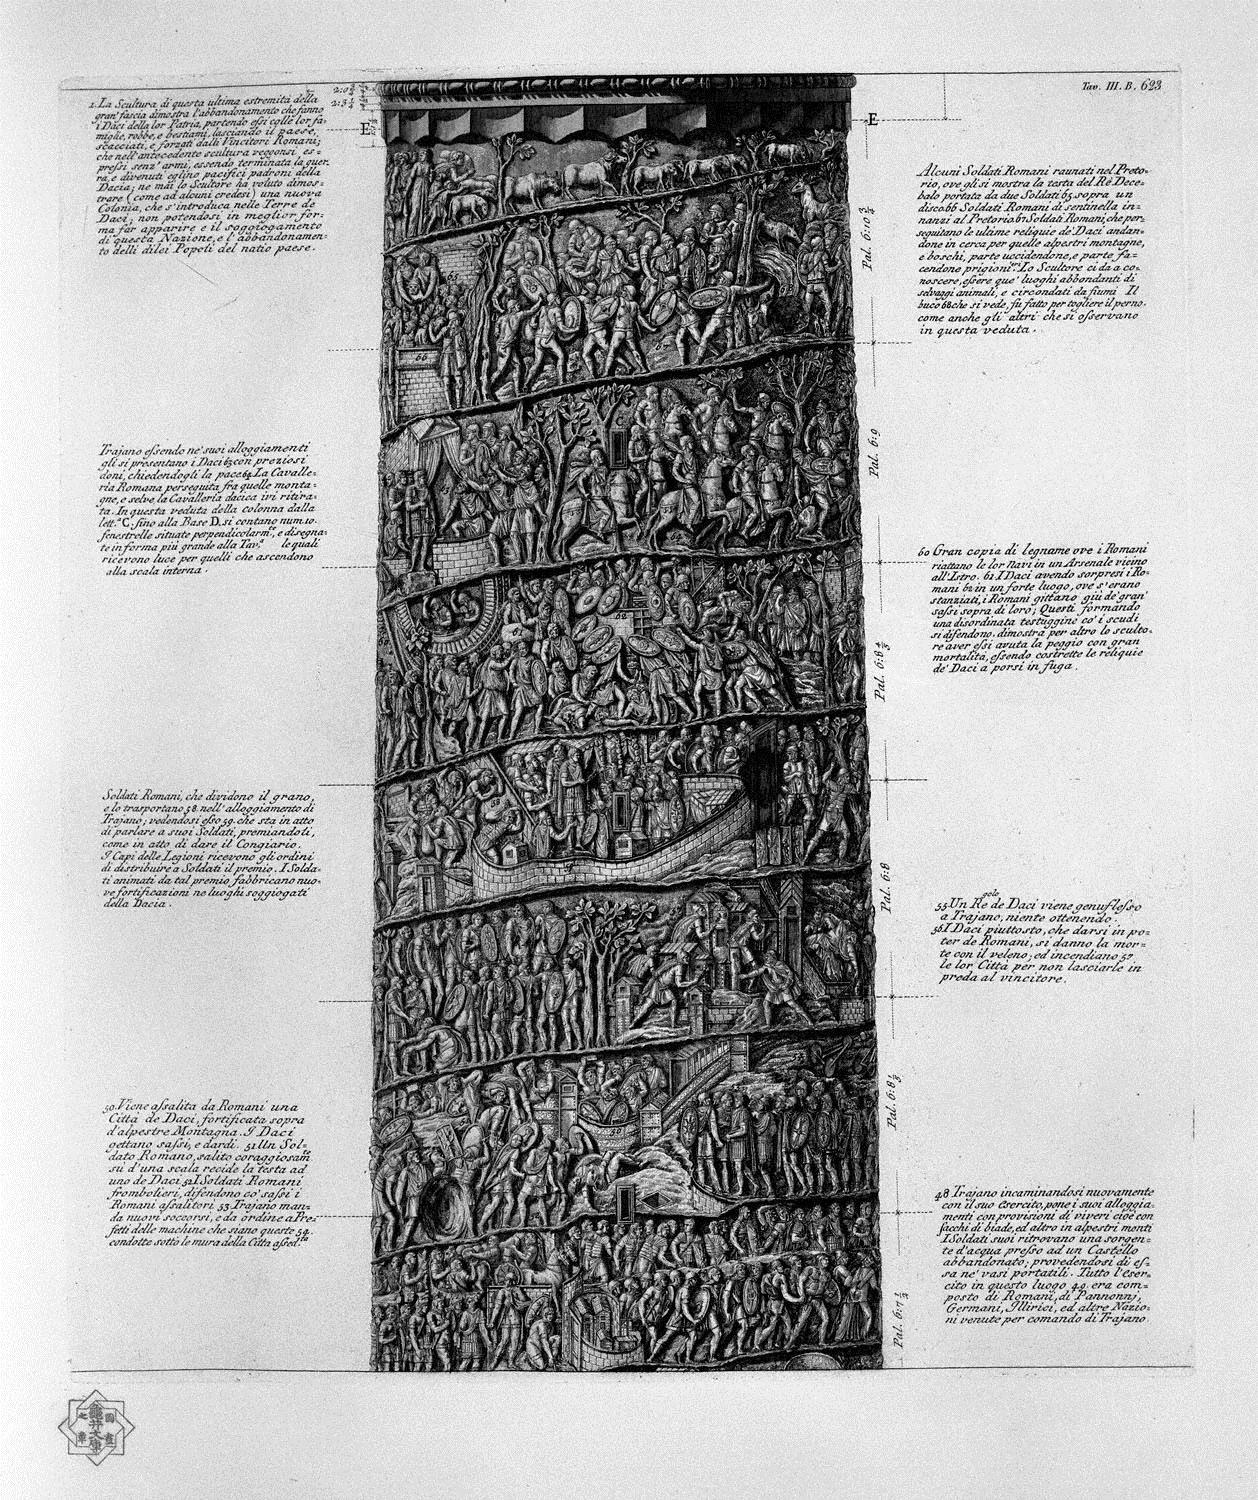 Tav. III. B. 623
1. La Scultura di questa ultima estremità della
gran' fascia dimostra l'abbandonamento che fanno
i Daci della lor Patria, partendo essi colle lor fa=
miglie, robbe, e bestiami, lasciando il paese,
scacciati, e forzati dalli Vincitori Romani;
che nell'antecedente scultura veggonsi es=
pressi senz' armi, essendo terminata la guer=
ra, e divenuti eglino pacifici padroni della
Dacia; ne mai lo Scultore ha voluto dimos=
trare (come ad alcuni credesi) una nuova
Colonia, che s'introduca nelle Terre de
Daci; non potendosi in meglior for=
ma far apparire e il soggiogamento
di questa Nazione, e l'abbandonamen=
to delli di loi Popoli del natio paese.
E
E
Alcuni Soldati Romani raunati nel Preto=
rio, ove gli si mostra la testa del Rè Dece=
balo portata da due Soldati 65 sopra un
disco. 66 Soldati Romani di sentinella in=
nanzi al Pretorio. 67 Soldati Romani, che per=
seguitano le ultime reliquie de' Daci andan=
done in cerca per quelle alpestri montagne,
e boschi, parte uccidendone, e parte fa=
cendone prigioni. Lo Scultore ci dà a co=
noscere, essere que' luoghi abbondanti di
selvaggi animali, e circondati da fiumi Il
buco 68 che si vede, fu fatto per togliere il perno.
come anche gli altri che si osservano
in questa veduta.
Pal. 6:10 2/3
Trajano essendo ne' suoi alloggiamenti
gli si presentano i Daci 63 con preziosi
doni, chiedendogli la pace. 64 La Cavalle=
ria Romana perseguita fra quelle monta=
gne, e selve la Cavalleria dacica ivi ritira=
ta. In questa veduta della colonna dalla
lett.ª C. fino alla Base D. si contano num. 10.
fenestrelle situate perpendicolarm.te, e disegna=
te in forma più grande alla Tav.ª le quali
ricevono luce per quelli che ascendono
alla scala interna.
Pal. 6:9
60 Gran copia di legname ove i Romani
riattano le lor Navi in un Arsenale vicino
all'Istro. 61. I Daci avendo sorpresi i Ro=
mani 62 in un forte luogo, ove s'erano
stanziati, i Romani gittano giù de' gran'
sassi sopra di loro; Questi formando
una disordinata testuggine co' i scudi
si difendono. dimostra per altro lo sculto=
re aver essi avuta la peggio con gran
mortalità, essendo costrette le reliquie
de' Daci a porsi in fuga.
Pal. 6:8
Soldati Romani, che dividono il grano,
e lo trasportano 58. nell'alloggiamento di
Trajano; vedendosi esso 59. che sta in atto
di parlare a suoi Soldati, premiandoli,
come in atto di dare il Congiario.
I Capi delle Legioni ricevono gli ordini
di distribuire a Soldati il premio. I Solda=
ti animati da tal premio fabbricano nuo=
ve fortificazioni ne luoghi soggiogati
della Dacia.
Pal. 6:8
55 Un Re de Daci viene genuflesso
a Trajano, niente ottenendo.
56 I Daci piuttosto, che darsi in po=
ter de Romani, si danno la mor=
te con il veleno; ed incendiano 57
le lor Città per non lasciarle in
preda al vincitore.
Pal. 6:8 1/3
50. Viene assalita da Romani una
Città de Daci, fortificata sopra
d'alpestre Montagna. I Daci
gettano sassi, e dardi. 51 Un Sol=
dato Romano, salito coraggiosam.te
sù d'una scala recide la testa ad
uno de Daci. 52 I Soldati Romani
frombolieri, difendono co' sassi i
Romani assalitori. 53 Trajano man=
da nuovi soccorsi, e dà ordine a Pre=
fetti delle machine che siano queste 54.
condotte sotto le mura della Città assed.ta
48 Trajano incaminandosi nuovamente
con il suo Esercito, pone i suoi alloggia=
menti con provisioni di viveri cioè con
sacchi di biade, ed altro in alpestri monti
I Soldati suoi ritrovano una sorgen=
te d'acqua presso ad un Castello
abbandonato; provedendosi di es=
sa ne' vasi portatili. Tutto l'eser=
cito in questo luogo 49. era com=
posto di Romani, di Pannonnj,
Germani, Illirici, ed altre Nazio=
ni venute per comando di Trajano.
Pal. 6:7 1/2